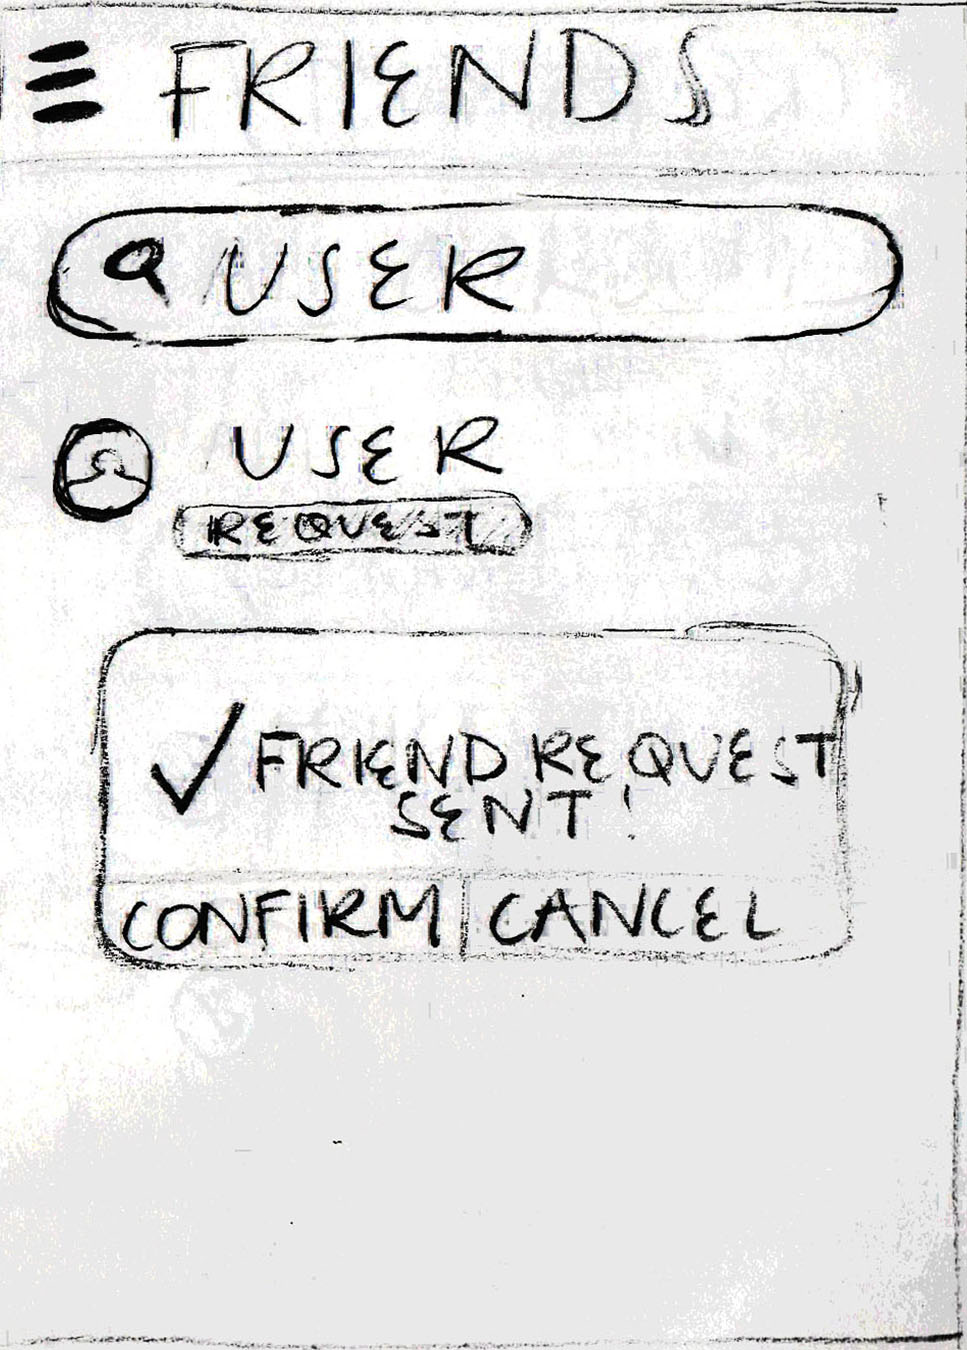 FRIENDS
USER
USER
REQUEST
FRIEND REQUEST
SENT!
CONFIRM CANCEL